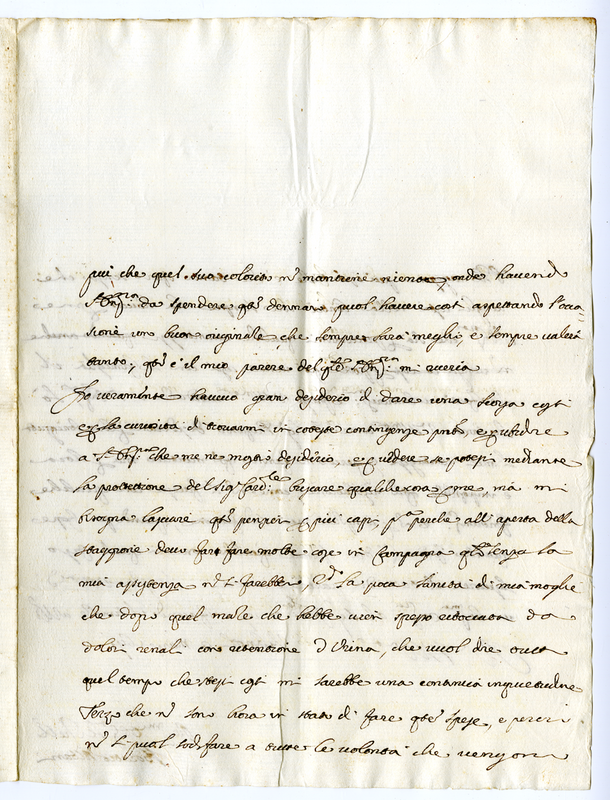 più che quel suo colorito nº mantiene niente, onde havend
da spendere qtº dennaro puol havere costì aspettando l'occa
sione un buon originale, che sempre sarà meglio e sempre valerà
tanto; qtº è il mio parere del qle mi queria
Io veramente havevo gran desiderio di dare una scorsa costì
la curiosità di trovarmi in coteste contingenze
che me ne mostrò desiderio, vedere se potessi mediante
la protettione del Sigr Cardle buscare qualche cosa me, ma mi
bisogna lasciare qtº pensier più capi pª perche all'aperta della
staggione devo far fare molte cose in Campagna qle senza la
mia assistenza nº si farebbe, 2dº la poca sanità di mia moglie
che dopo quel male che hebbe vien spesso attaccata da
dolori renali con ritentione d'Urina, che vuol dire tutto
quel tempo che stessi costì mi sarebbe una continua inquietudine
Terzo che nº son hora in stato di fare qte spese, e perciò
nº si puol sodisfare a tutte le volontà che vengon